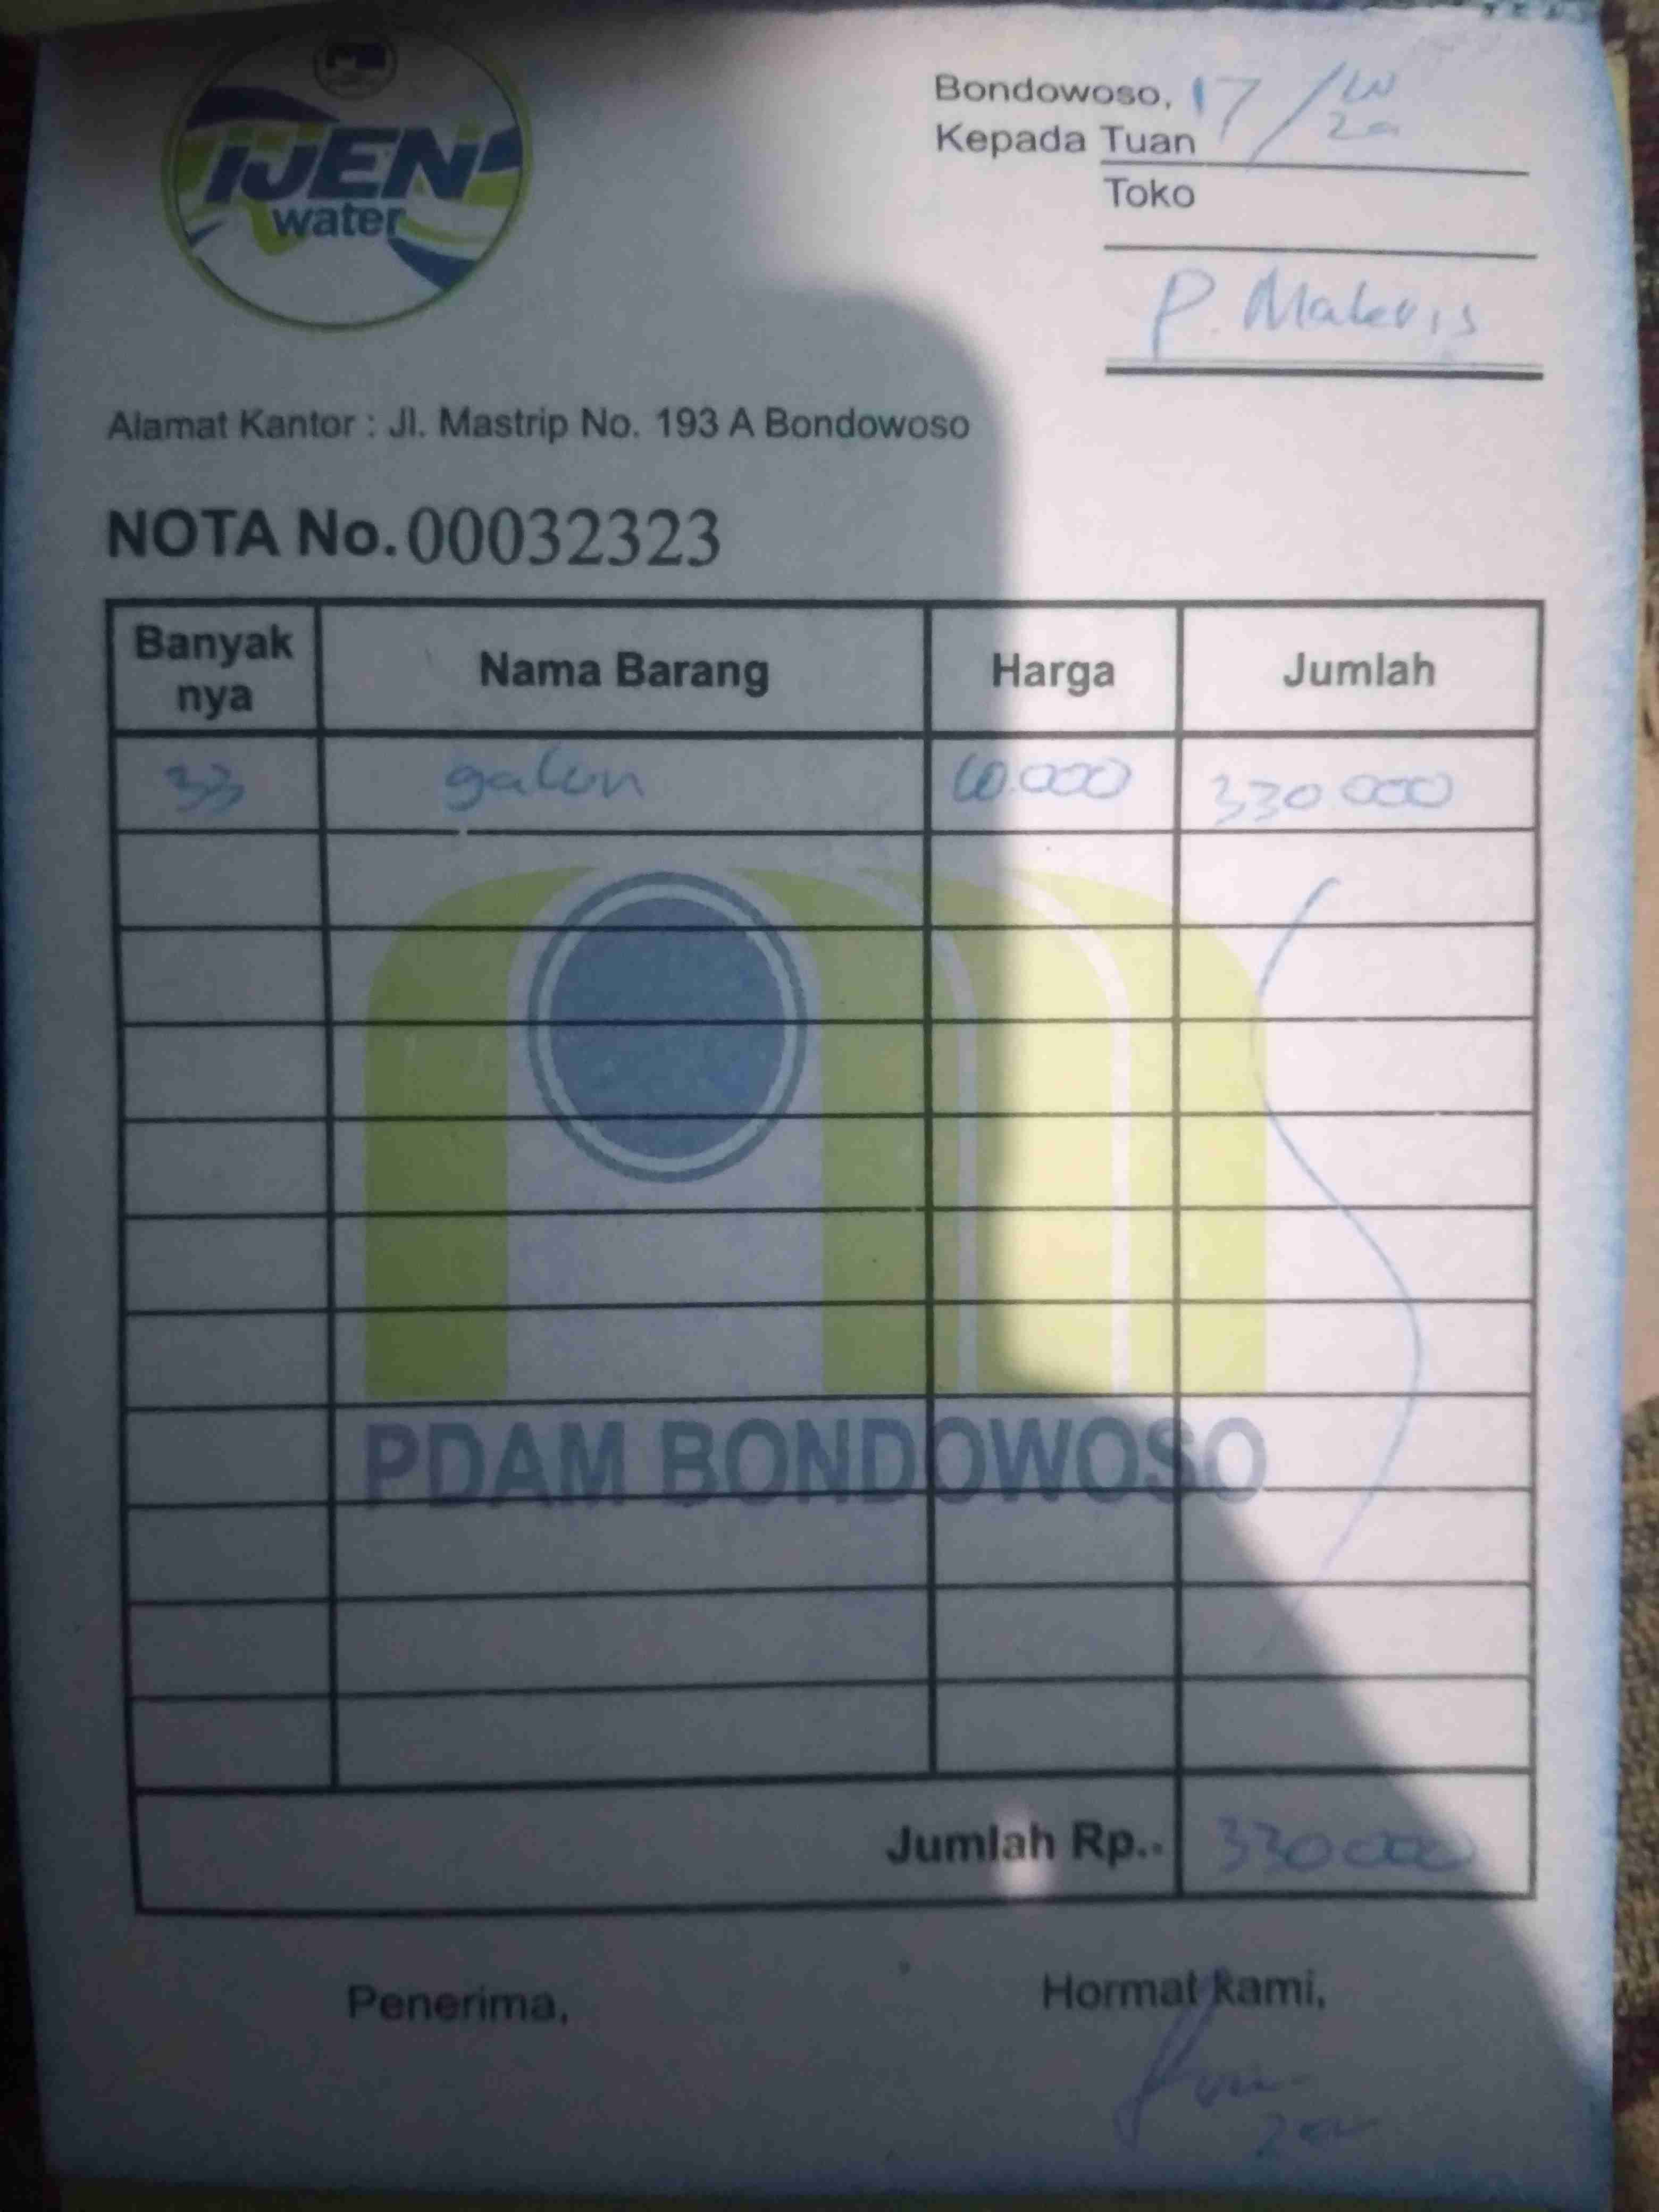 IJEN
water
Bondowoso, 17/10
Kepada Tuan
Toko
P.
Alamat Kantor : Jl. Mastrip No. 193 A Bondowoso
NOTA No. 00032323
Banyak nya Nama Barang Harga Jumlah
33 galon 10.000 330 000
PDAM BONDOWOSO
Jumlah Rp.- 330 000
Penerima, Hormat kami,